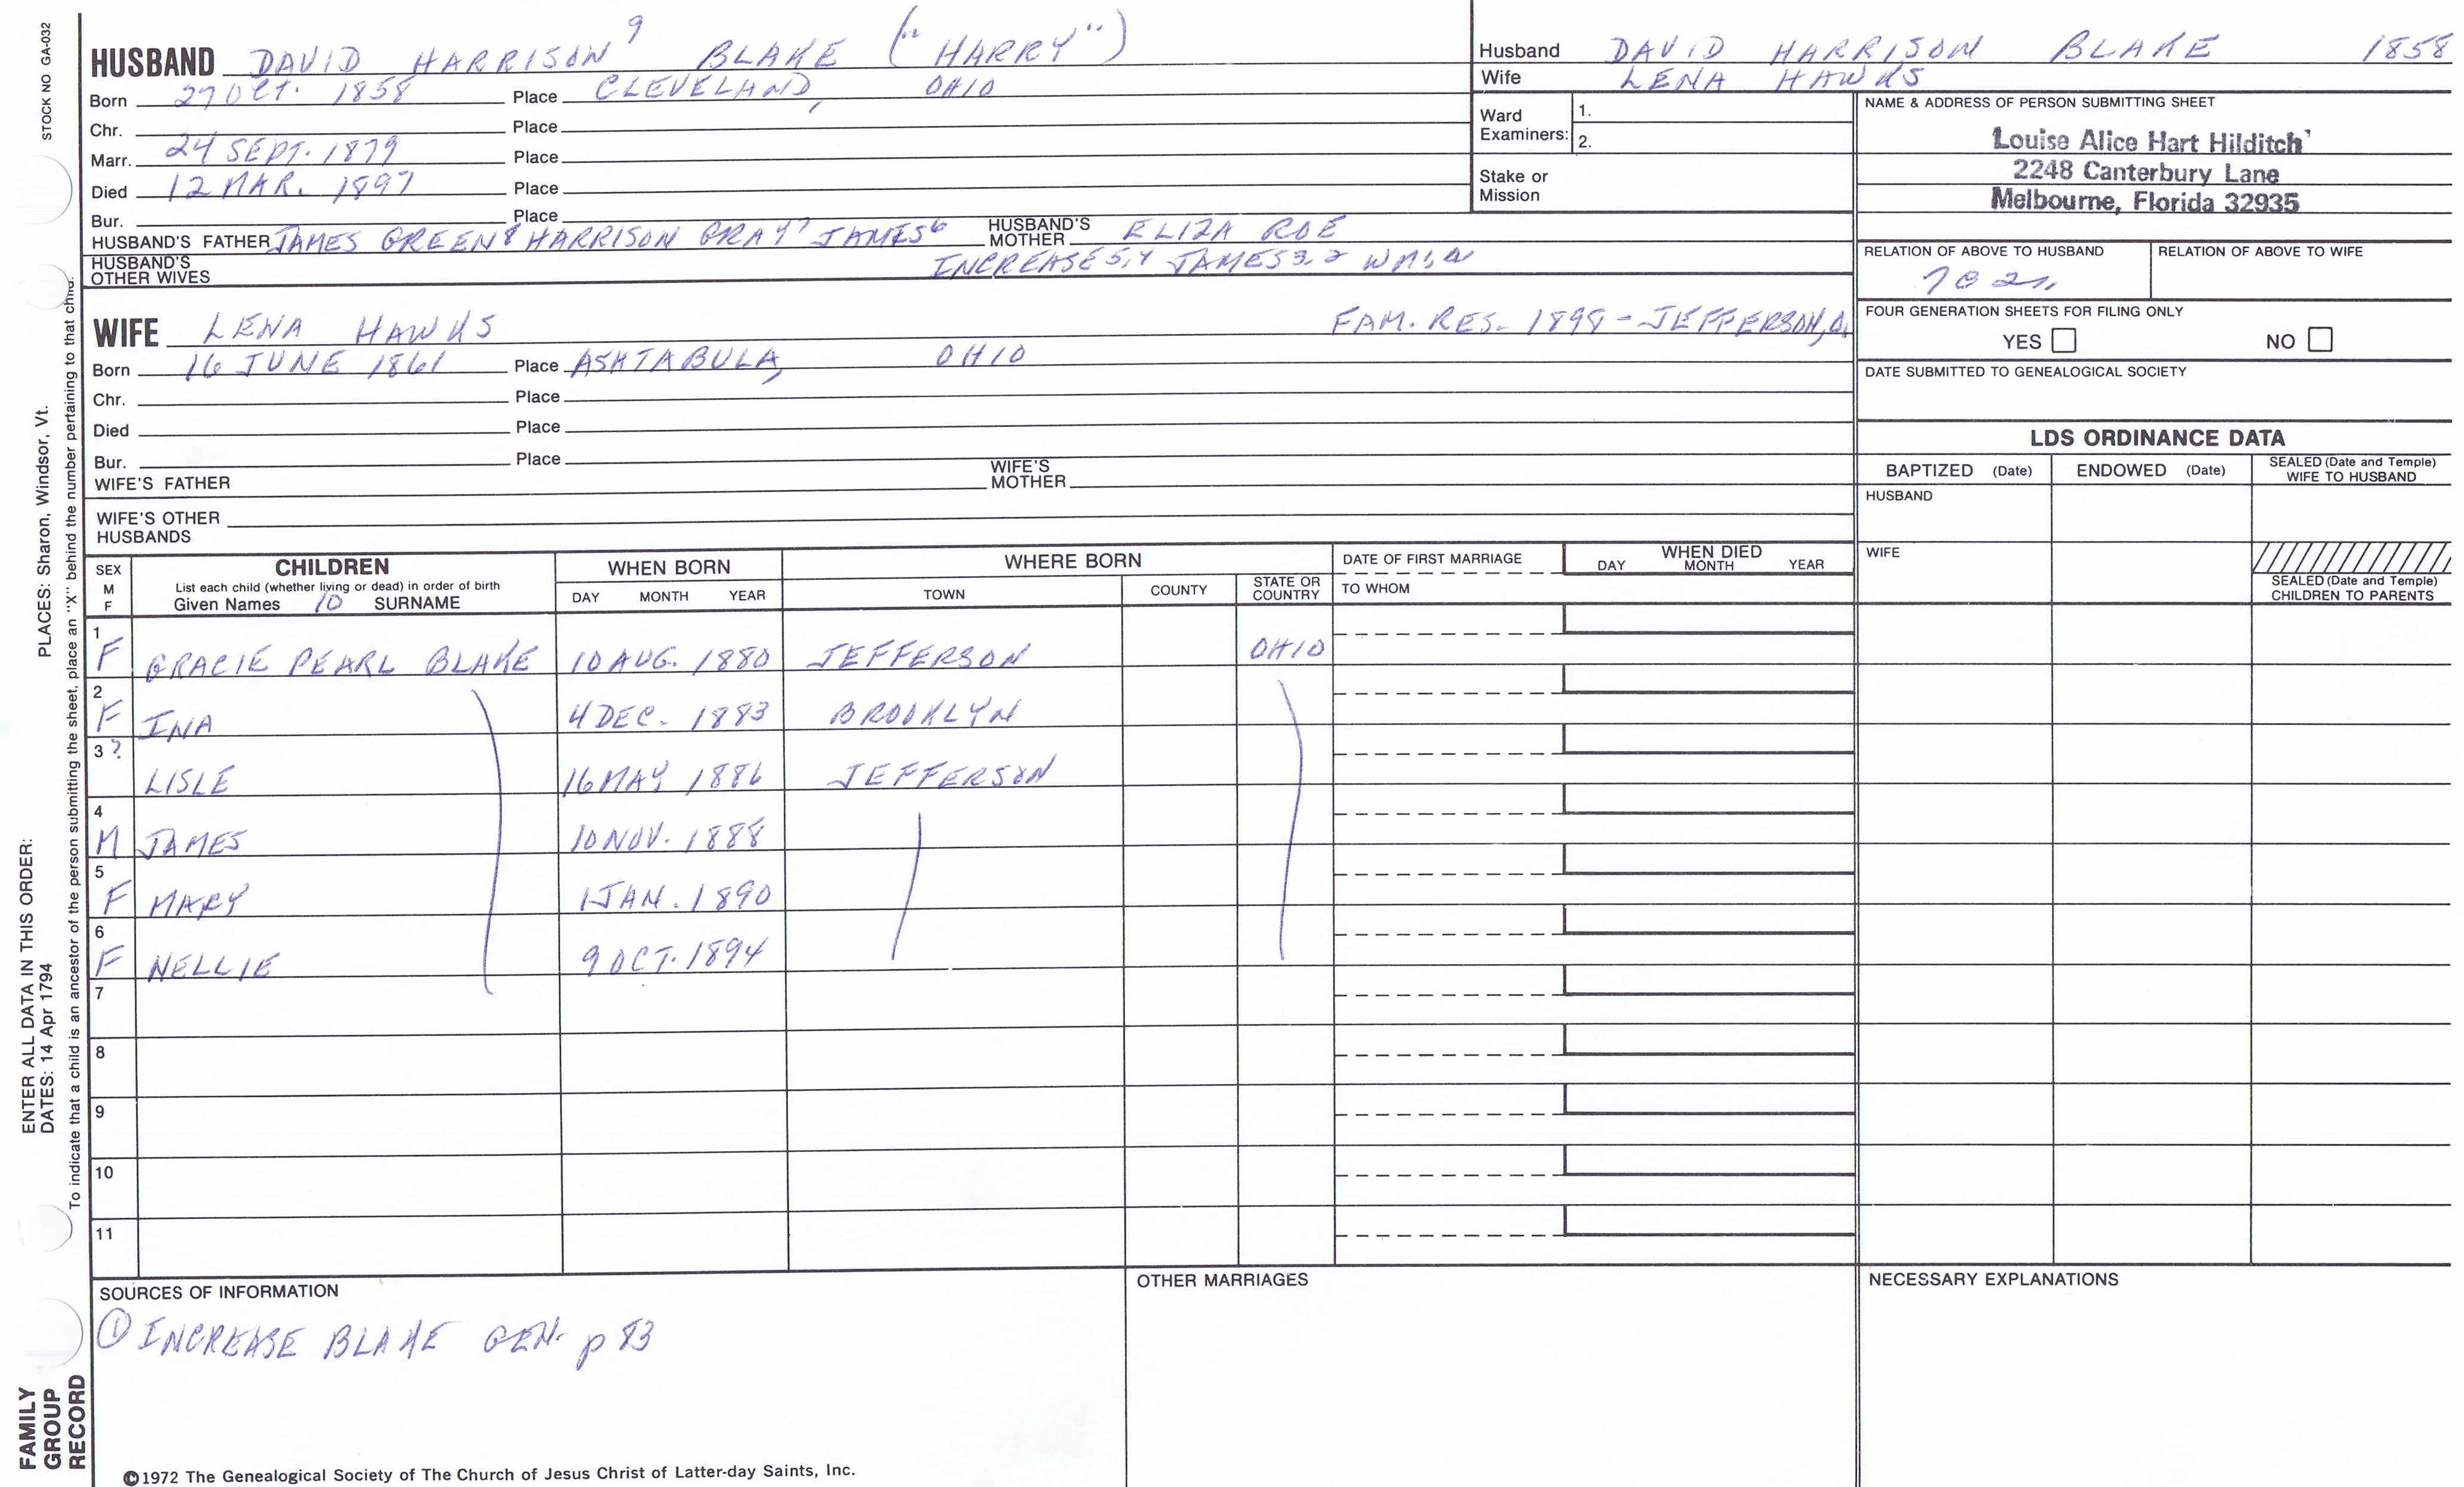 STOCK NO GA-032
HUSBAND DAVID HARRISON⁹ BLAKE ("HARRY")
Born 27 OCT. 1858 Place CLEVELAND, OHIO
Chr. Place
Marr. 24 SEPT. 1879 Place
Died 12 MAR. 1897 Place
Bur. Place
HUSBAND'S FATHER JAMES GREEN⁸ HARRISON GRAY⁷ JAMES⁶ HUSBAND'S MOTHER ELIZA ROE
HUSBAND'S OTHER WIVES INCREASE 5,4 JAMES 3,2 WM 1,a
WIFE LENA HAWKS FAM. RES. 1898 - JEFFERSON, O.
Born 16 JUNE 1861 Place ASHTABULA, OHIO
Chr. Place
Died Place
Bur. Place
WIFE'S FATHER WIFE'S MOTHER
WIFE'S OTHER HUSBANDS
Husband DAVID HARRISON BLAKE 1858
Wife LENA HAWKS
Ward Examiners: 1.
2.
Stake or Mission
NAME & ADDRESS OF PERSON SUBMITTING SHEET
Louise Alice Hart Hilditch
2248 Canterbury Lane
Melbourne, Florida 32935
RELATION OF ABOVE TO HUSBAND RELATION OF ABOVE TO WIFE
FOUR GENERATION SHEETS FOR FILING ONLY
YES NO
DATE SUBMITTED TO GENEALOGICAL SOCIETY
LDS ORDINANCE DATA
BAPTIZED (Date) ENDOWED (Date) SEALED (Date and Temple) WIFE TO HUSBAND
HUSBAND
WIFE
SEALED (Date and Temple) CHILDREN TO PARENTS
SEX M F CHILDREN WHEN BORN WHERE BORN DATE OF FIRST MARRIAGE WHEN DIED
List each child (whether living or dead) in order of birth
Given Names 10 SURNAME DAY MONTH YEAR TOWN COUNTY STATE OR COUNTRY TO WHOM DAY MONTH YEAR
1 F GRACIE PEARL BLAKE 10 AUG. 1880 JEFFERSON OHIO
2 F INA 4 DEC. 1883 BROOKLYN
3 ? LISLE 16 MAY 1886 JEFFERSON
4 M JAMES 10 NOV. 1888
5 F MARY 1 JAN. 1890
6 F NELLIE 9 OCT. 1894
7
8
9
10
11
SOURCES OF INFORMATION OTHER MARRIAGES NECESSARY EXPLANATIONS
① INCREASE BLAKE GEN. p 83
©1972 The Genealogical Society of The Church of Jesus Christ of Latter-day Saints, Inc.
FAMILY GROUP RECORD
ENTER ALL DATA IN THIS ORDER:
DATES: 14 Apr 1794 PLACES: Sharon, Windsor, Vt.
To indicate that a child is an ancestor of the person submitting the sheet, place an "X" behind the number pertaining to that child.